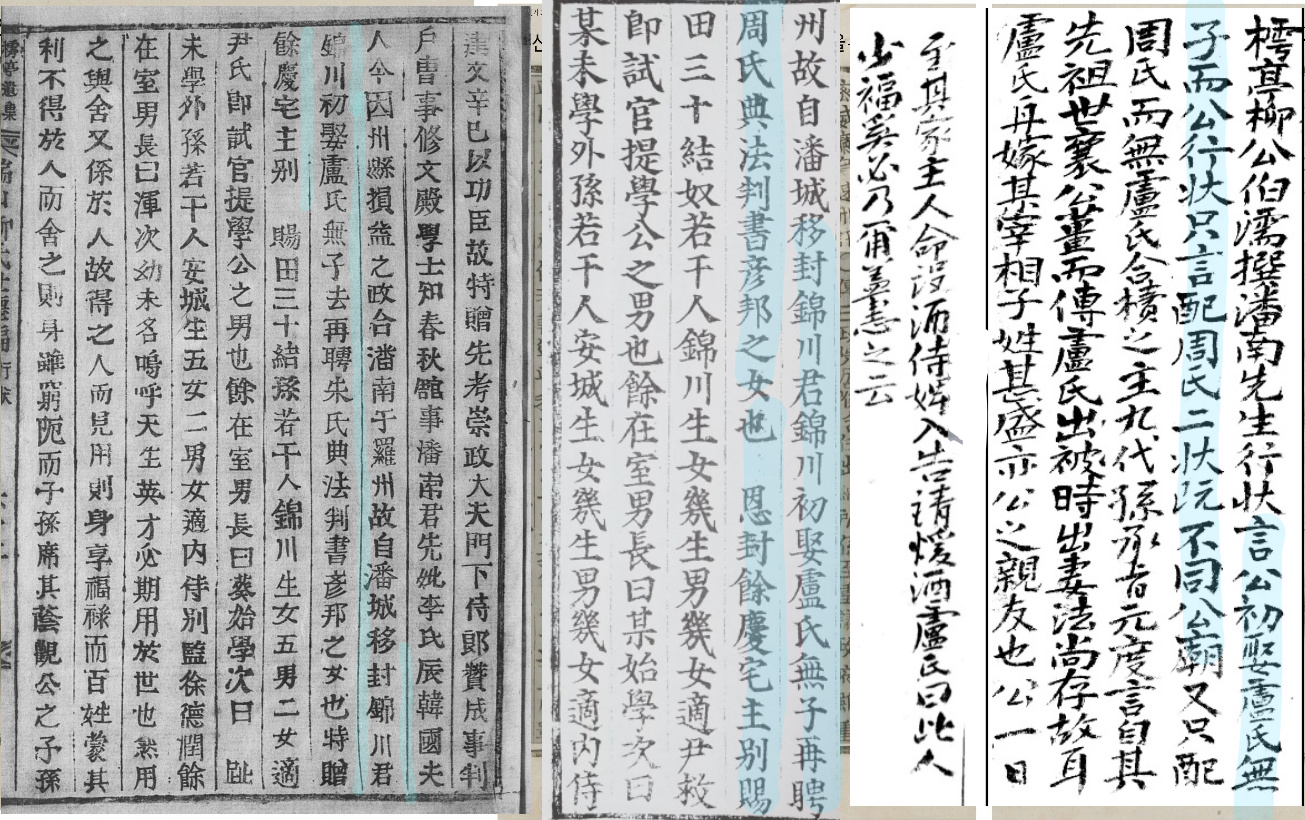 樗亭柳公伯濡撰潘南先生行狀言公初娶盧氏無
子而公行狀只言配周氏二狀阮不同公廟又只配
周氏而無盧氏合櫝之主九代孫承旨元度言自其
先祖世襄公薑而傳盧氏出被時出妻法尚存故耳
盧氏再嫁其宰相子姓甚盛亦公之親友也公一日
至其家主人命設酒侍婢入告請煖酒盧氏曰此人
少福奚必乃爾盖憲之云
州故自潘城移封錦川君錦川初娶盧氏無子再聘
周氏典法判書彦邦之女也 恩封餘慶宅主别賜
田三十結奴若干人錦川生女幾生男幾女適尹救
卽試官提學公之男也餘在室男長曰某始學次曰
某未學外孫若干人安城生女幾生男幾女適內侍
建文辛巳以功臣故特贈先考崇政大夫門下侍郎贊成事判
戶曹事修文殿學士知春秋館事潘南君先妣李氏辰韓國夫
人今因州縣損益之政合潘南于羅州故自潘城移封錦川君
錦川初娶盧氏無子去再聘朱氏典法判書彦邦之女也特贈
餘慶宅主别 賜田三十結孫若干人錦川生女五男二女適
尹氏卽試官提學公之男也餘在室男長曰葵始學次曰 跐
未學外孫若干人安城生五女二男女適內侍別監徐德潤餘
在室男長曰渾次幼未名嗚呼天生英才必期用於世也然用
之與舍又係於人故得之人而見用則身享福祿而百姓蒙其
利不得於人而舍之則身雖窮阨而子孫席其蔭觀公之子孫